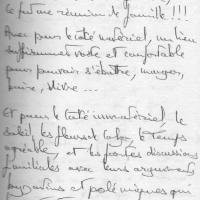 future réunion de famille !!!
Avec pour le côté matériel, un lieu
suffisamment vaste et confortable
pour pouvoir s'ébattre, manger,
boire, vivre ...
Et pour le côté immatériel, le
soleil, les fleurs et le temps
agréable, et les discussions
familiales avec leurs arguments
byzantins et polémiques qui